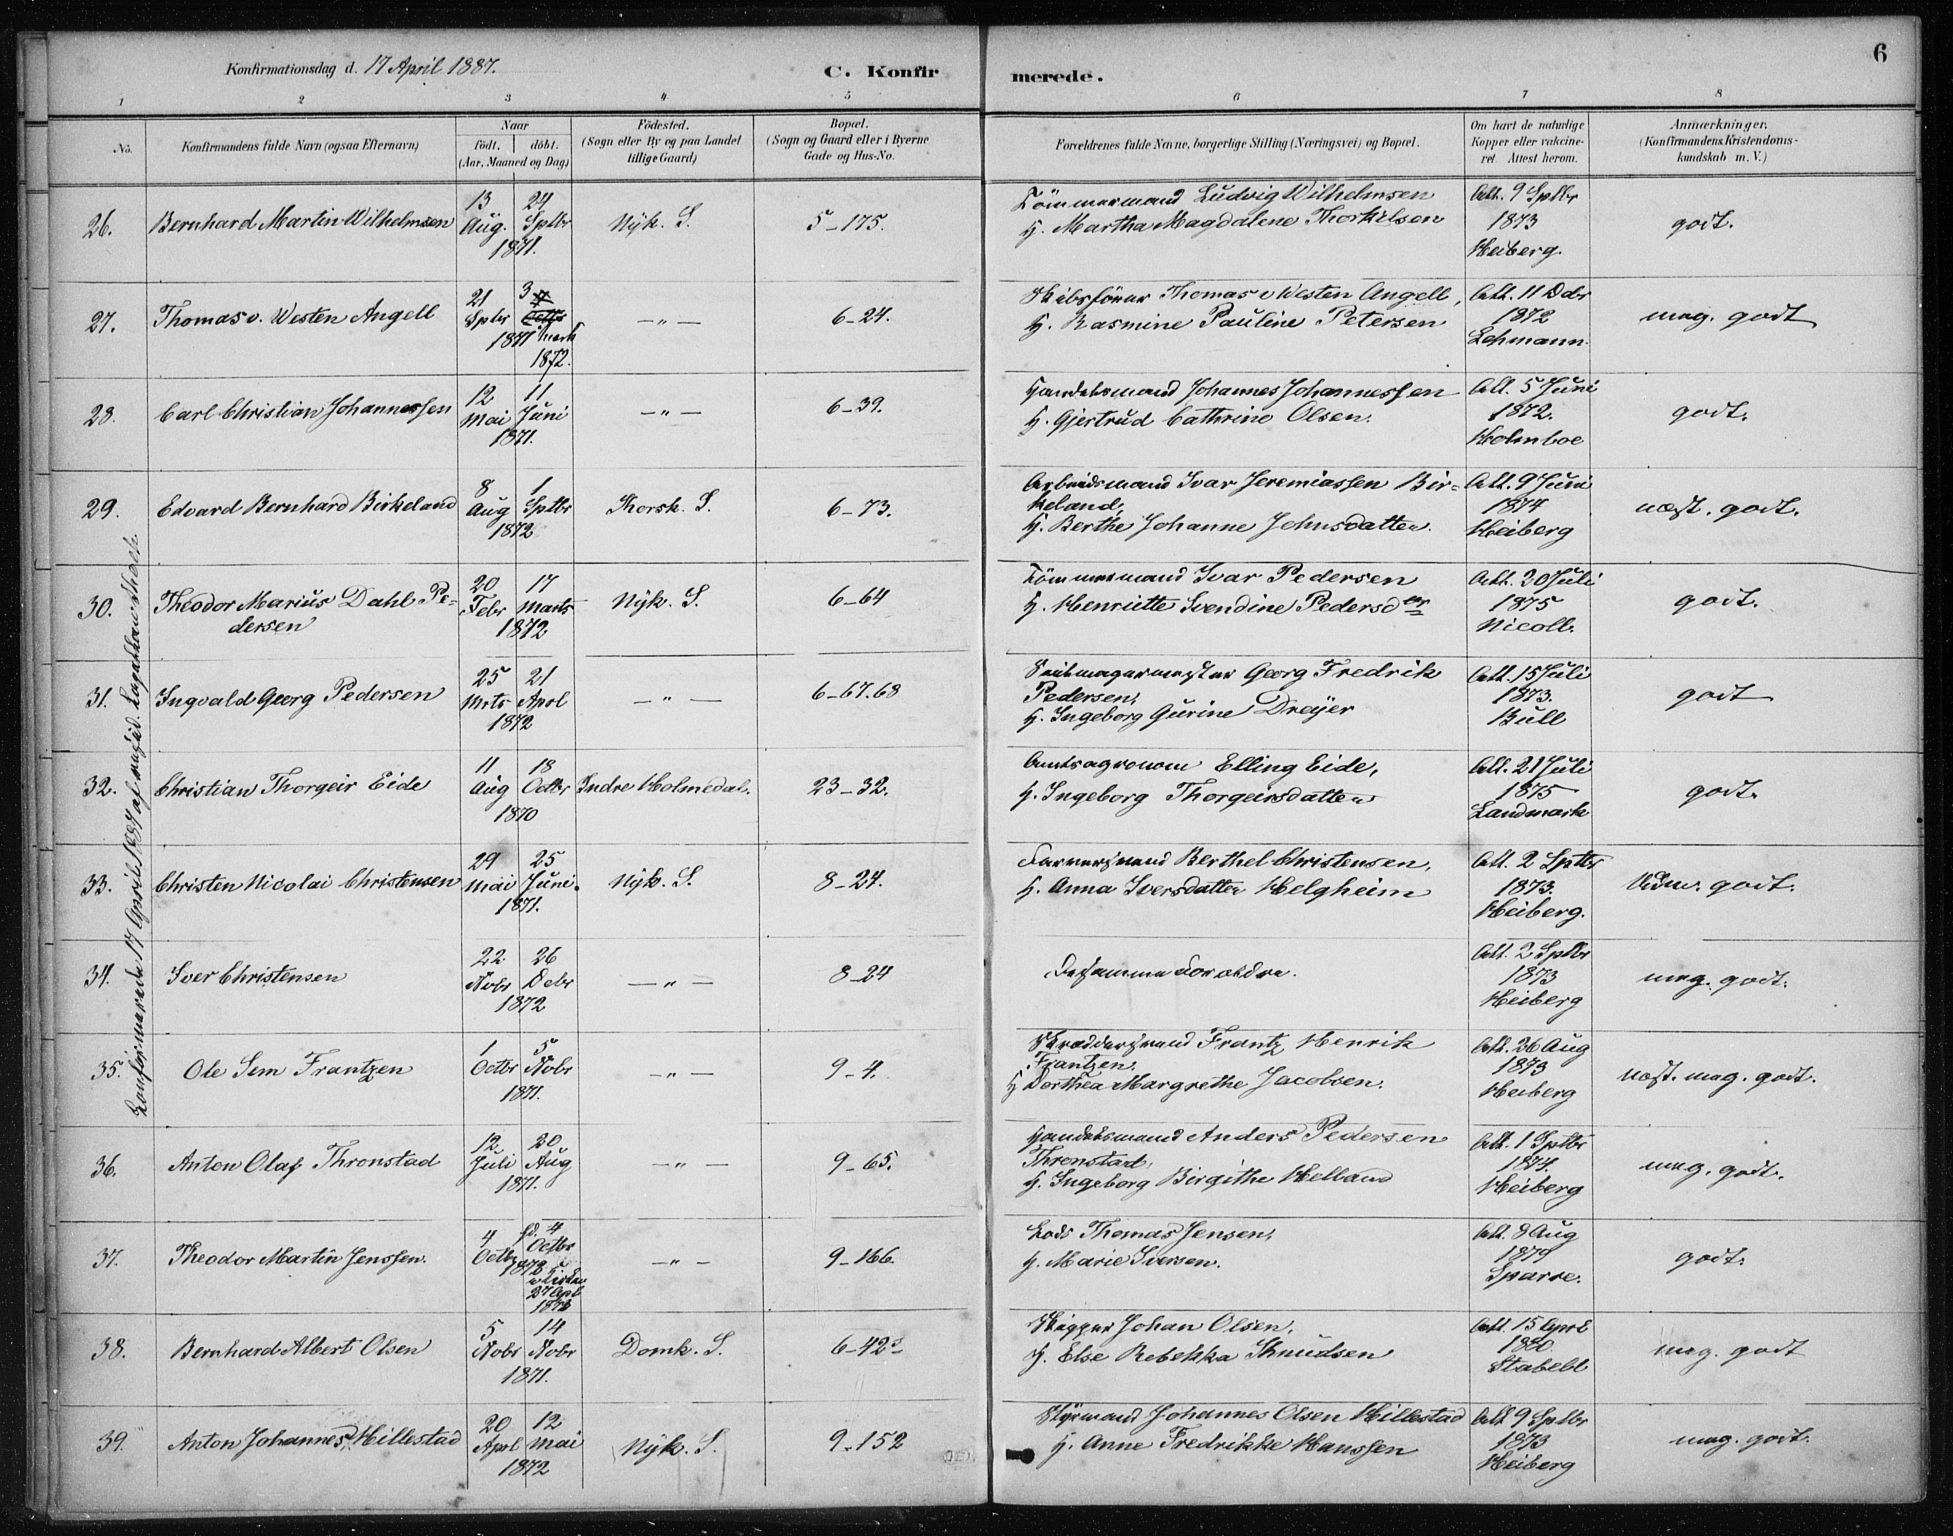 Konfirmationsdag d. 17 April 1887.
C. Konfir
merede.
6
1 2 3 4 5 6 7 8
No.
Konfirmandens fulde Navn (ogsaa Efternavn)
Naar
født. døbt.
(Aar, Maaned og Dag)
Fødested.
(Sogn eller By og paa Landet
tillige Gaard)
Bopæl.
(Sogn og Gaard eller i Byerne
Gade og Hus-No.
Forældrenes fulde Navne, borgerlige Stilling (Næringsvei) og Bopæl.
Om havt de naturlige
Kopper eller vakcine-
ret. Attest herom.
Anmærkninger.
(Konfirmandens Kristendoms-
kundskab m. V.)
Konfirmerede 17 April 1887 af
26. Bernhard Martin Wilhelmsen
13 Aug. 24 Sptbr 1871.
Nyk. S.
5-175.
Tømmermand Ludvig Wilhelmsen
H. Martha Magdalene Thorkelsen
Att. 9 Sptbr
1873
Heiberg.
godt.
27. Thomas v. Westen Angell
21 Sptbr 1871 3 Marts 1872.
— " —
6-24.
Skibsfører Thomas v Westen Angell,
H. Rasmine Pauline Petersen
Att. 11 Dcbr
1872
Lehmann.
meg. godt
28. Carl Christian Johannessen
12 Mai 11 Juni 1871.
— " —
6-39.
Handelsmand Johannes Johannessen
H. Gjertrud Cathrine Olsen.
Att. 5 Juni
1872.
Holmboe
godt.
29. Edvard Bernhard Birkeland
8 Aug 1 Sptbr 1872
Korsk. S.
6-73.
Arbeidsmand Ivar Jeremiassen Bir-
keland,
H. Berthe Johanne Johnsdatter.
Att. 9 Juni
1874
Heiberg
næst. godt.
30. Theodor Marius Dahl Pe-
dersen
20 Febr 17 Marts 1872
Nyk. S.
6-64
Tømmermand Ivar Pedersen
H. Henriette Svendine Pedersdtr
Att. 30 Juli
1875
Nicoll.
godt.
31. Ingvald Georg Pedersen
25 Mrts 21 Aprl 1872
— " —
6-67.68
Seilmagermester Georg Fredrik
Pedersen,
H. Ingeborg Gurine Dreyer
Att. 15 Juli
1873.
Bull
godt
32. Christian Thorgeir Eide
11 Aug 18 Octbr 1870
Indre Holmedal.
23-32.
Amtsagronom Elling Eide,
H. Ingeborg Thorgeirsdatter
Att. 21 Juli
1875
Landmark
godt.
33. Christen Nicolai Christensen
29 Mai 25 Juni. 1871.
Nyk. S.
8-24.
Farversvend Berthel Christensen,
H. Anna Iversdatter Helgheim
Att. 2 Sptbr
1873.
Heiberg.
godt.
34. Iver Christensen
22 Nobr 26 Debr 1872
— " —
8-24
Desamme Forældre.
Att. 2 Sptbr
1873
Heiberg
meg. godt.
35. Ole Sem Frantzen
1 Octbr 5 Nobr 1871.
— " —
9-4.
Skræddersvend Frantz Henrik
Frantzen.
H Dorthea Margrethe Jacobsen.
Att. 26 Aug
1873
Heiberg
næst. meg. godt.
36. Anton Olaf Thronstad
12 Juli 20 Aug 1871.
— " —
9-65.
Handelsmand Anders Pedersen
Thronstad,
H. Ingeborg Birgithe Helland
Att. 1 Sptbr
1874.
Heiberg
meg. godt.
37. Theodor Martin Jenssen.
4 Octbr hd. 4 Octbr 1872 i Kirken 27 Apl 1873
— " —
9-166.
Lods Thomas Jensen,
H. Marie Iversen.
Att. 8 Aug
1879
Sparre.
godt.
38. Bernhard Albert Olsen
5 Nobr 14 Nobr 1871.
Domk. S.
6-42
Skipper Johan Olsen.
H. Else Rebekka Knudsen
Att. 15 April
1880
Stabell
meg. godt
39. Anton Johannes Hillestad
20 Aprl 12 Mai 1872
Nyk. S.
9-152
Styrmand Johannes Olsen Hillestad
H. Anne Fredrikke Hanssen
Att 9 Sptbr
1873
Heiberg
meg. godt.